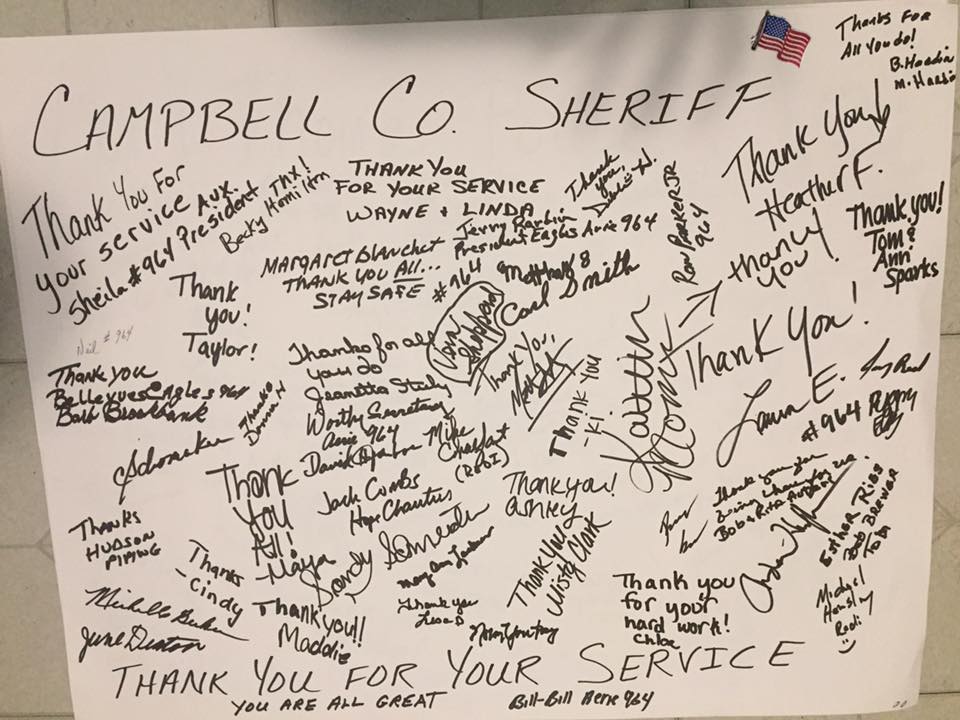 Thanks For
All You do!
B. Hardin
M. Hardin
CAMPBELL CO. SHERIFF
Thank You For
your service
Sheila #964 Aux. President
THX!
Becky Hamilton
THANK YOU
FOR YOUR SERVICE
WAYNE + LINDA
Thank
you,
Thank You
Heather F.
Ron Parker JR
964
Thank you!
Tom &
Ann
Sparks
Jerry
President Eagles Aerie 964
MARGARET BLANCHET
THANK YOU ALL...
STAY SAFE #964
Matthew 8
Carl Smith
thank
you!
Thank
you!
Taylor!
Neil #964
Thank You!
Laura E.
Thanks for all
you do
Jeanetta
Worthy Secretary
Aerie 964
Thank You,
Thank you
-Ki
Kaitlin
Thank you
Bellevue Eagles 964
Bob Brookbank
Thanks
Donna
Schomaker
#964
David
Mike
Jack Combs
Hope Charities
Thank
you
All!
-Maya
Thank you!
Ashley
Thank you for
being
Bob & Rita
Esther Rios
Bob Brewer
Tobi
Thanks
HUDSON
PIPING
Thanks
-Cindy
Sandy
Thank You
Misty Clark
Thank you
for your
hard work!
Chloe
Michelle
June
Thank you!!
Maddie
Thank you
THANK YOU FOR YOUR SERVICE
YOU ARE ALL GREAT
Bill-Bill Aerie 964